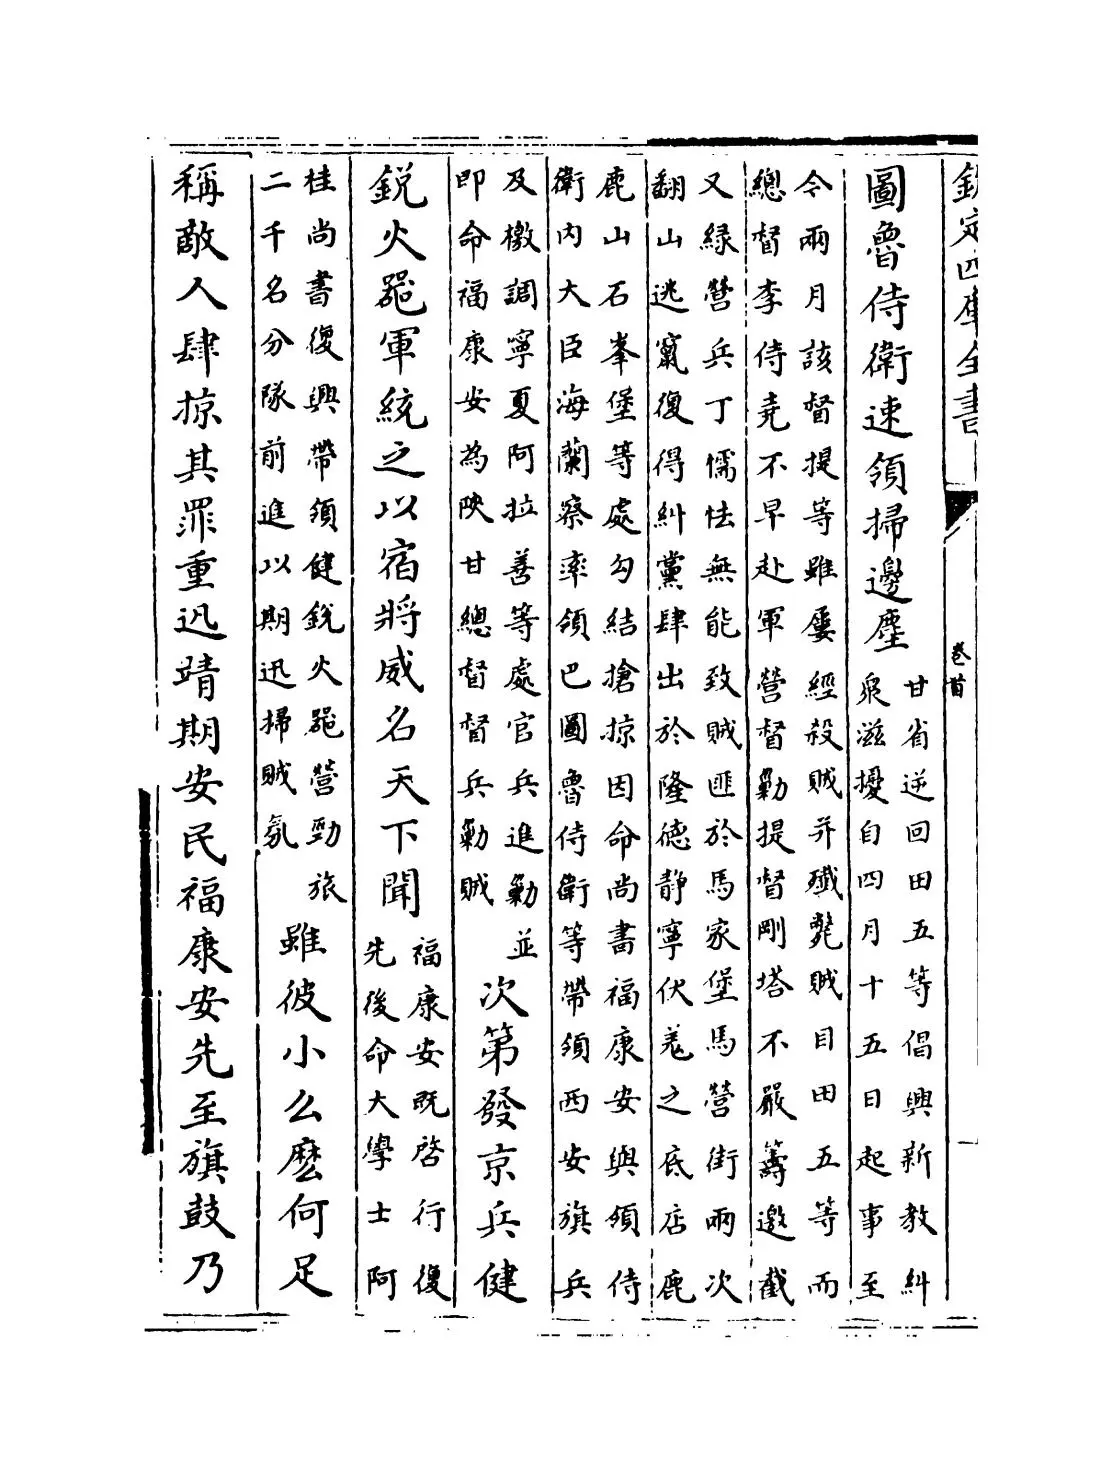 欽定四庫全書
卷首
圖魯侍衛速領掃邊塵
甘省逆回田五等倡興新教糾
衆滋擾自四月十五日起事至
令兩月該督提等雖屢經殺賊并殲斃賊目田五等而
總督李侍堯不早赴軍營督勦提督剛塔不嚴籌邀截
又緑營兵丁懦怯無能致賊匪於馬家堡馬營街兩次
翻山逃竄復得糾黨肆出於隆德靜寧伏羗之底店鹿
鹿山石峯堡等處勾結搶掠因命尚書福康安與領侍
衛内大臣海蘭察率領巴圖魯侍衛等帶領西安旗兵
及檄調寧夏阿拉善等處官兵進勦並
即命福康安為陜甘總督督兵勦賊
次第發京兵健
鋭火器軍統之以宿將威名天下聞
福康安既啓行復
先後命大學士阿
桂尚書復興帶領健鋭火器營勁旅
二千名分隊前進以期迅掃賊氛
雖彼小么麽何足
稱敵人肆掠其罪重迅靖期安民福康安先至旗鼓乃